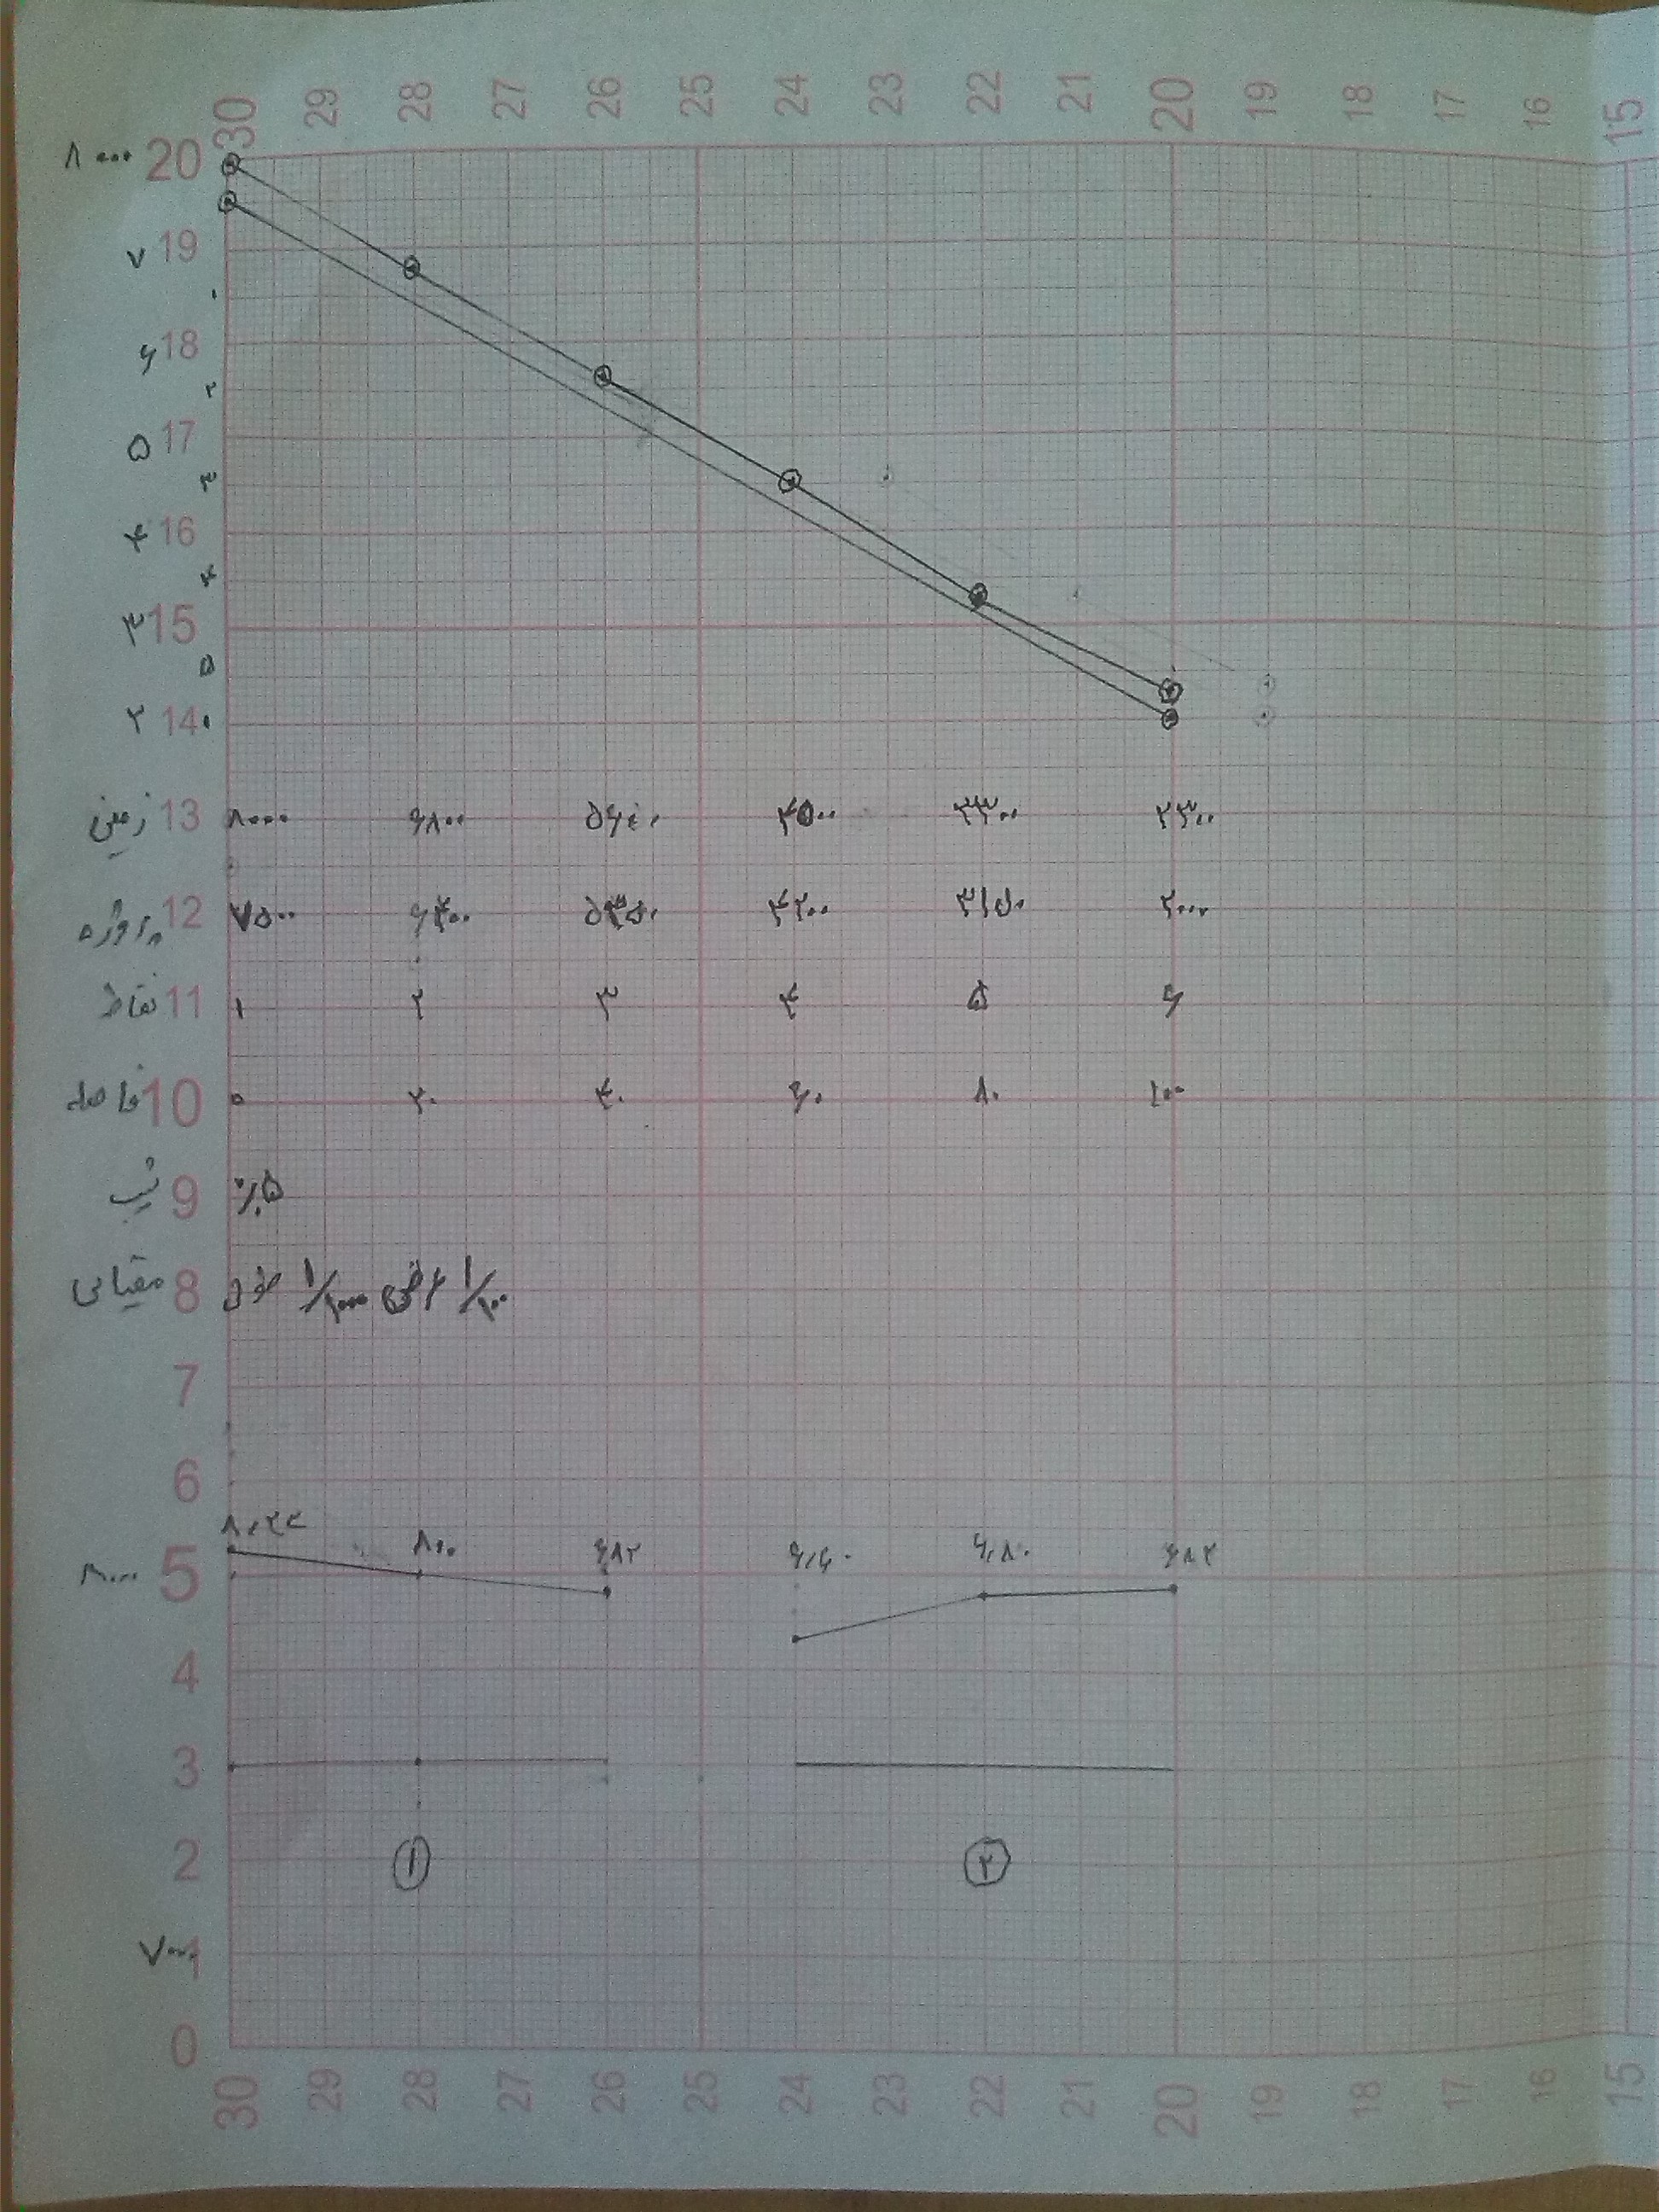 30 29 28 27 26 25 24 23 22 21 20 19 18 17 16 15
۸۰۰۰ 20
۷ 19
۱
۶ 18
۲
۵ 17
۳
۴ 16
۴
۳ 15
۵
۲ 14
زمین 13 ۸۰۰۰ ۶۸۰۰ ۵۶۴۰ ۴۵۰۰ ۳۳۰۰ ۲۳۰۰
پروژه 12 ۷۵۰۰ ۶۴۰۰ ۵۳۵۰ ۴۲۰۰ ۳۱۵۰ ۲۰۰۰
نقاط 11 ۱ ۲ ۳ ۴ ۵ ۶
فاصله 10 ۰ ۲۰ ۴۰ ۶۰ ۸۰ ۱۰۰
شیب 9 ٪۵
مقیاس 8 طولی ۱/۱۰۰۰ عرضی ۱/۱۰۰
7
6
۸,۲۴ ۸۰۰ ۶۸۲ ۶,۶۰ ۶,۸۰ ۶۸۲
۸۰۰۰ 5
4
3
2 ۱ ۲
۷۰۰۰ 1
0
30 29 28 27 26 25 24 23 22 21 20 19 18 17 16 15